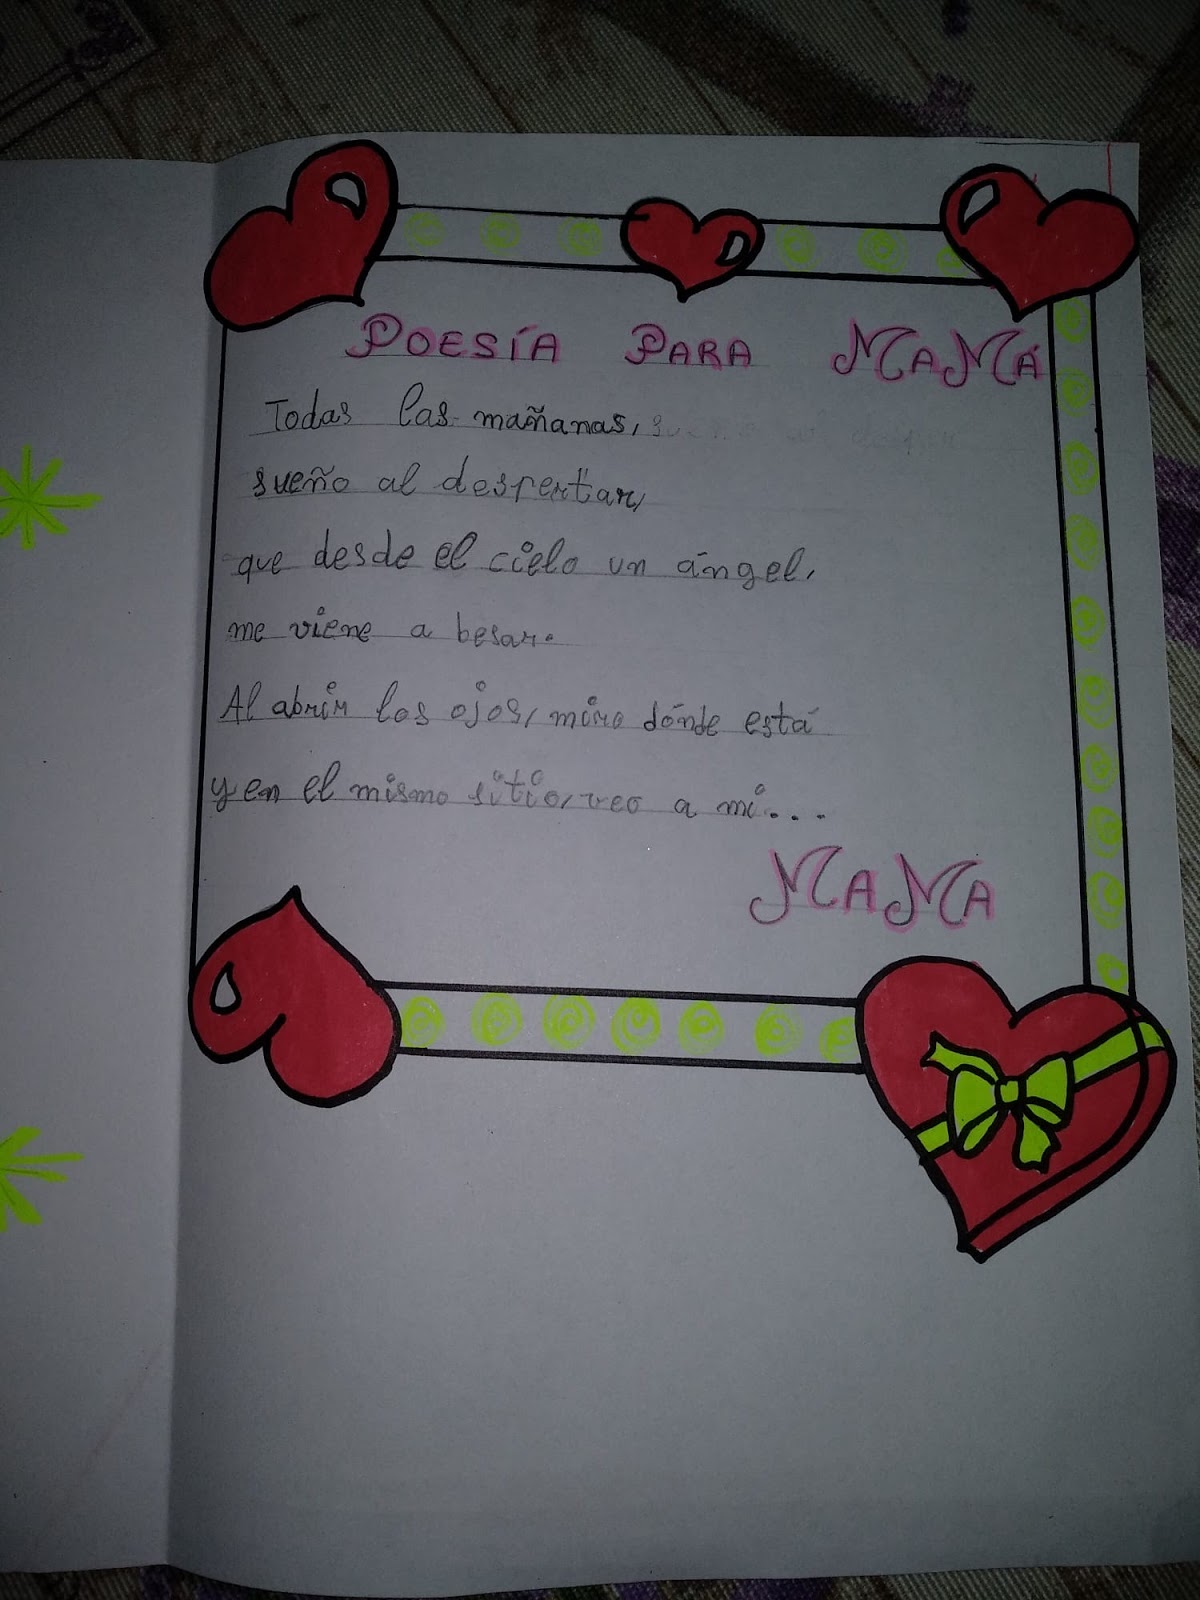 POESÍA PARA MAMÁ
Todas las mañanas,
sueño al despertar,
que desde el cielo un ángel,
me viene a besar.
Al abrir los ojos, miro dónde está
y en el mismo sitio, veo a mi...
MAMA